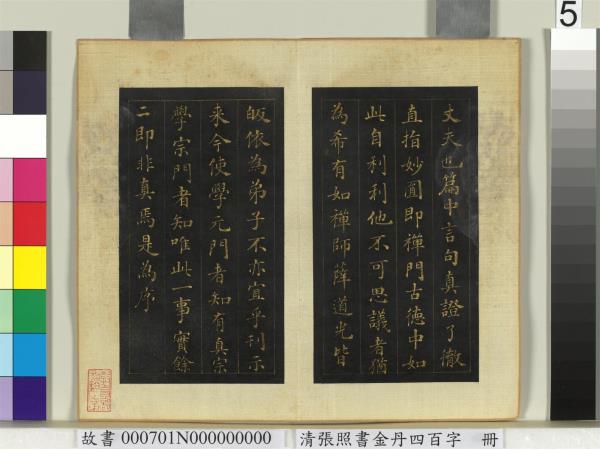 丈夫也篇中言句真證了徹
直指妙圓即禪門古德中如
此自利利他不可思議者猶
為希有如禪師薛道光皆
皈依為弟子不亦宜乎刊示
來今使學元門者知有真宗
學宗門者知唯此一事實餘
二即非真焉是為序
5
故書 000701N000000000
清張照書金丹四百字 冊